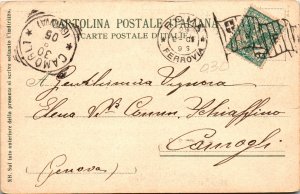 CARTOLINA POSTALE ITALIANA
(CARTE POSTALE D'ITALIE)
CAMOGLI
(GENOVA)
30
05
FERROVIA
A Gentilissima Signora
Elena Schiaffino
Camogli
(Genova)
NB. Sul lato anteriore della presente si scrive soltanto l'indirizzo